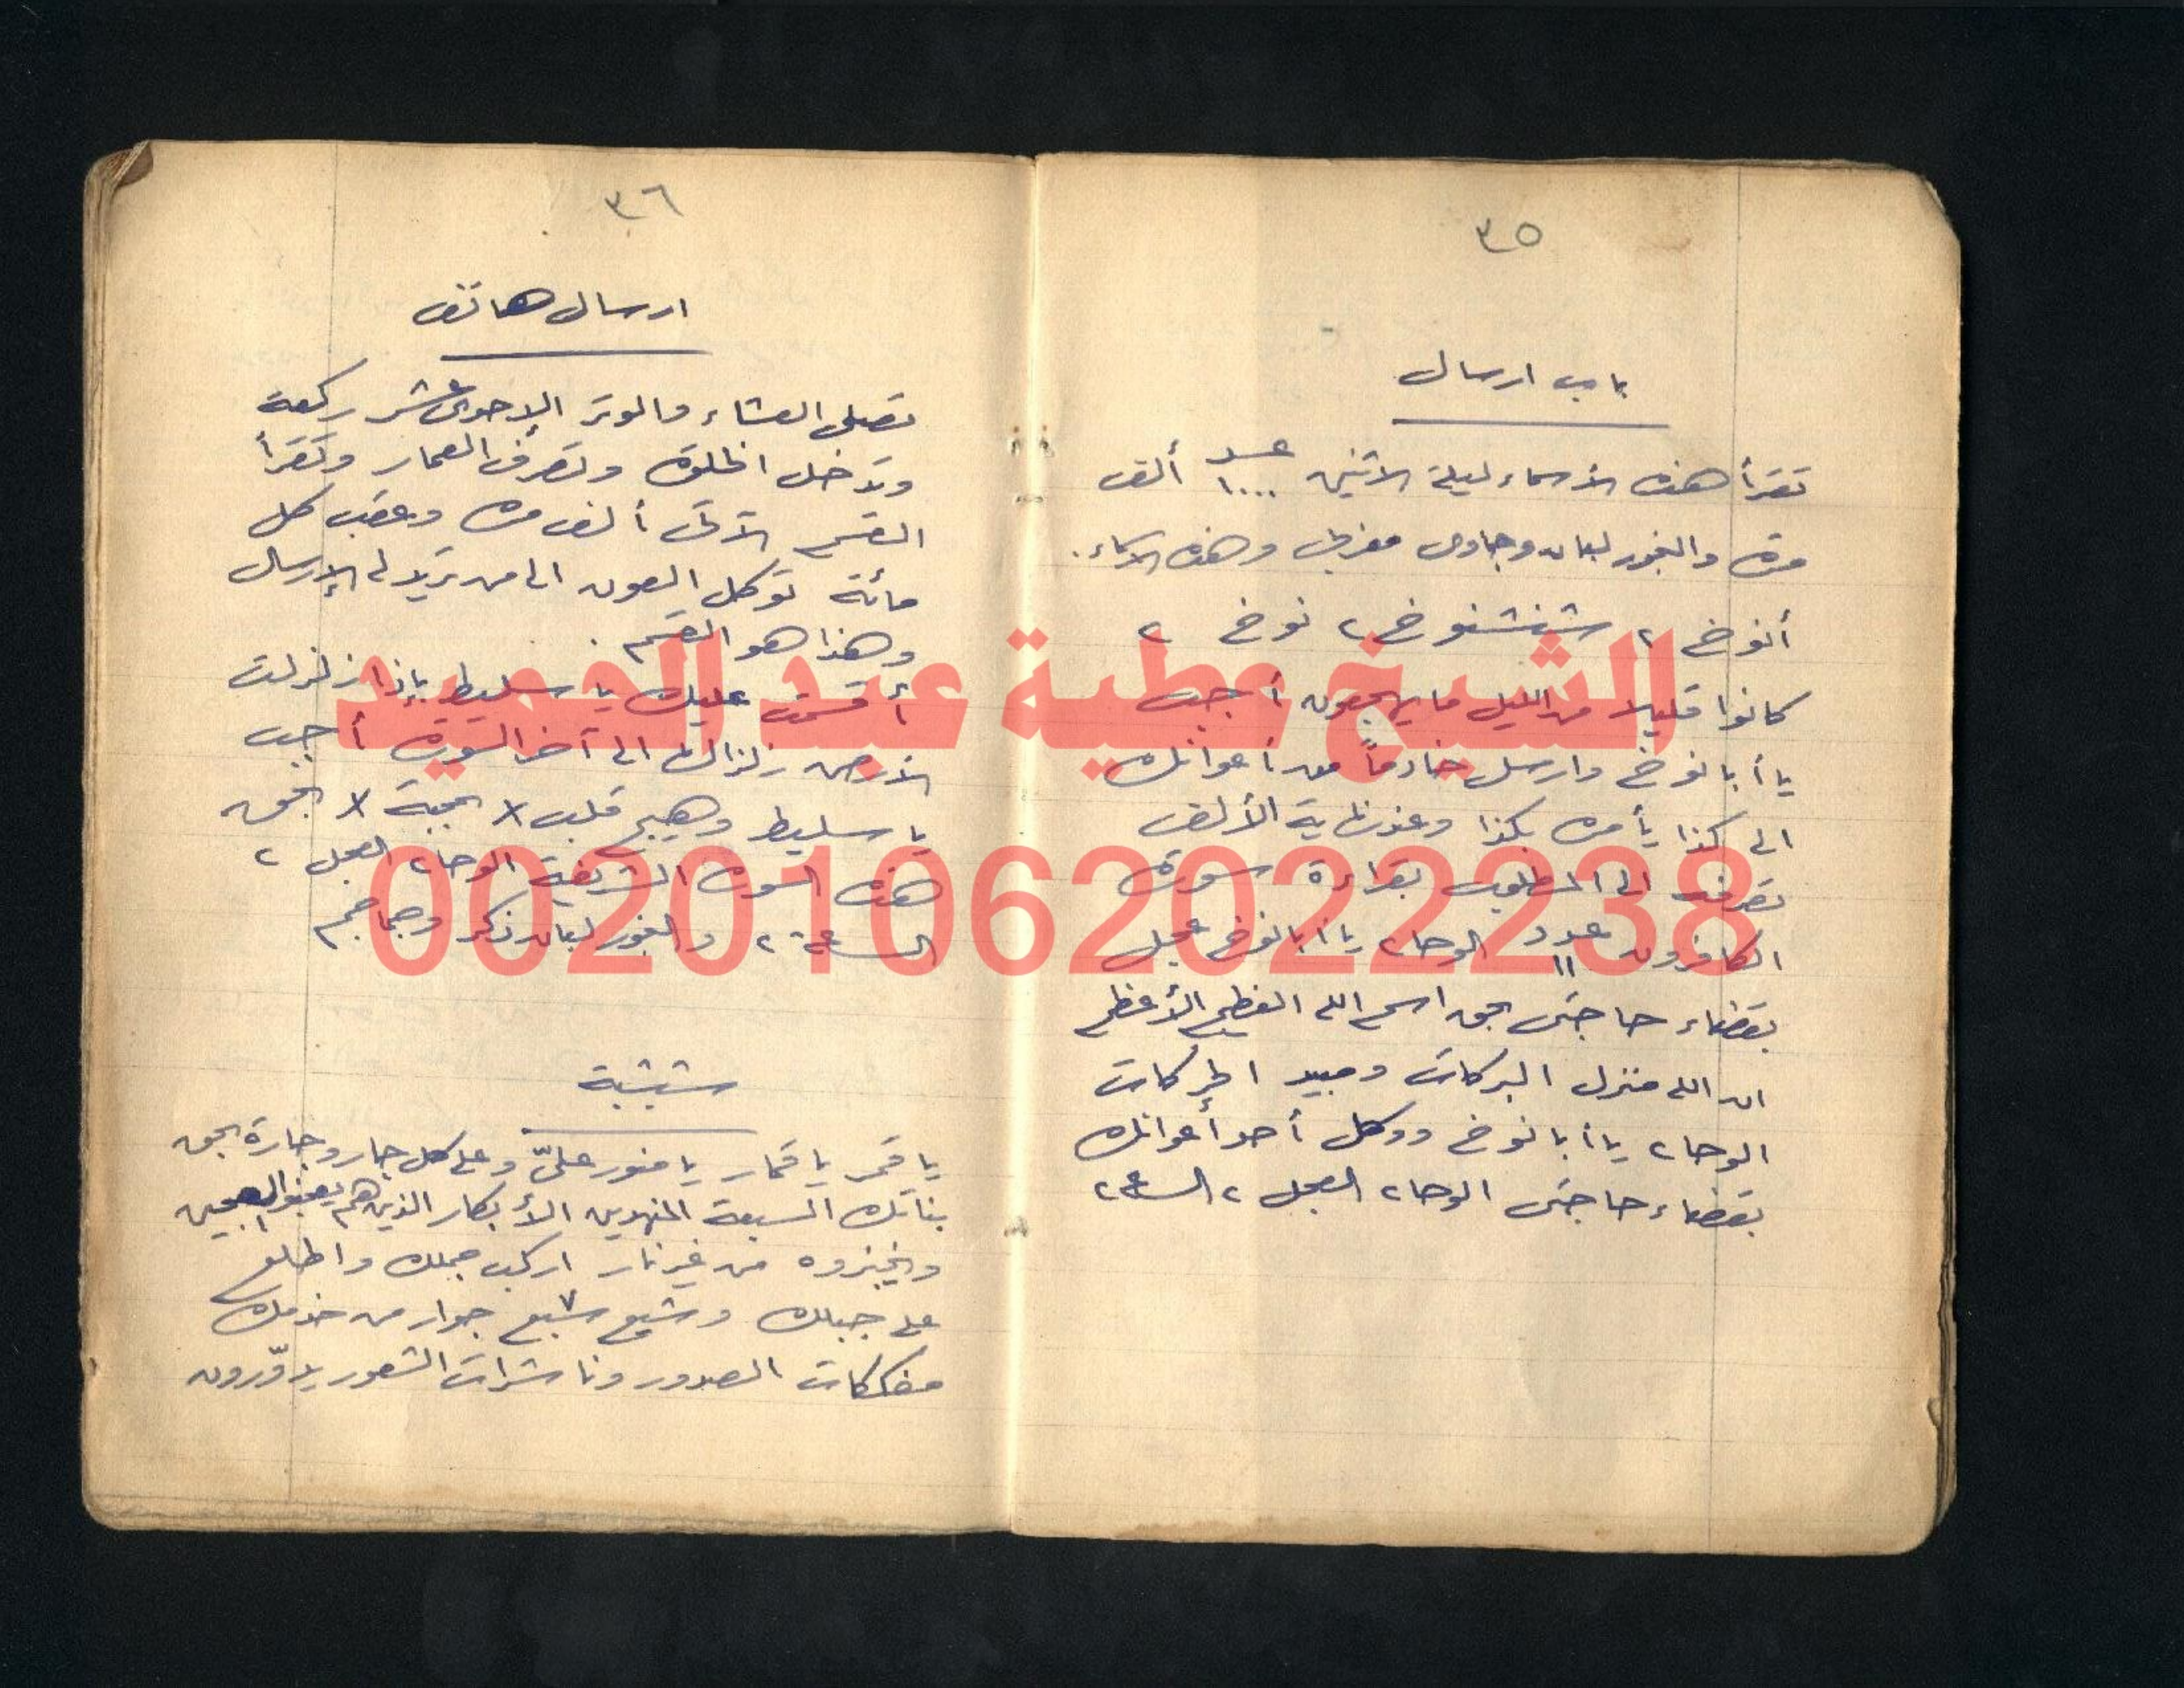 ٣٥
باب ارسال
تقرأ هذه الأسماء ليلة الاثنين عدد ١٠٠٠ ألف
مرة والبخور لبان وجاوى مغربى وهذه الأسماء.
أنوخ ٢ شنشنوخ ٢ نوخ ٢
كانوا قليلا من الليل ما يهجعون أجب
يا أبا نوخ وارسل خادماً من أعوانك
الى كذا يأمره بكذا وعند نهاية الألف
تصرفه الى المطلوب بقراءة سورة
الكافرون عدد ١١ الوحا ٢ يا أبا نوخ عجل
بقضاء حاجتى بحق اسم الله العظيم الأعظم
ان الله منزل البركات ومبيد الحركات
الوحا ٢ يا أبا نوخ ووكل أحد أعوانك
بقضاء حاجتى الوحا ٢ العجل ٢ الساعة ٢
٣٦
ارسال هاتف
تصلى العشاء والوتر الإحدى عشر ركعة
وتدخل الخلوة وتصرف العمار وتقرأ
القسم الآتى ألف مرة وعقب كل
مائة توكل العون الى من تريد له الإرسال
وهذا هو القسم.
أقسمت عليك يا سليط بإذا زلزلت
الأرض زلزالها الى آخر السورة أجب
يا سليط وهيج قلب X بمحبة X بحق
هذه السورة الشريفة الوحا ٢ العجل ٢
الساعة ٢ والبخور لبان ذكر وجماجم
شبشبة
يا قمر يا قمار يا منور علىّ وعلى كل جار وجارة بحق
بناتك السبعة المنهدين الأبكار الذين هم يعجنوا العجين
ويخبزوه من غير نار اركب جملك واطلع
على جبلك وشيع سبع ٧ جوار من خدمك
مفككات الصدور وناشرات الشعور يدوّرون
الشيخ عطية عبد الحميد
00201062022238